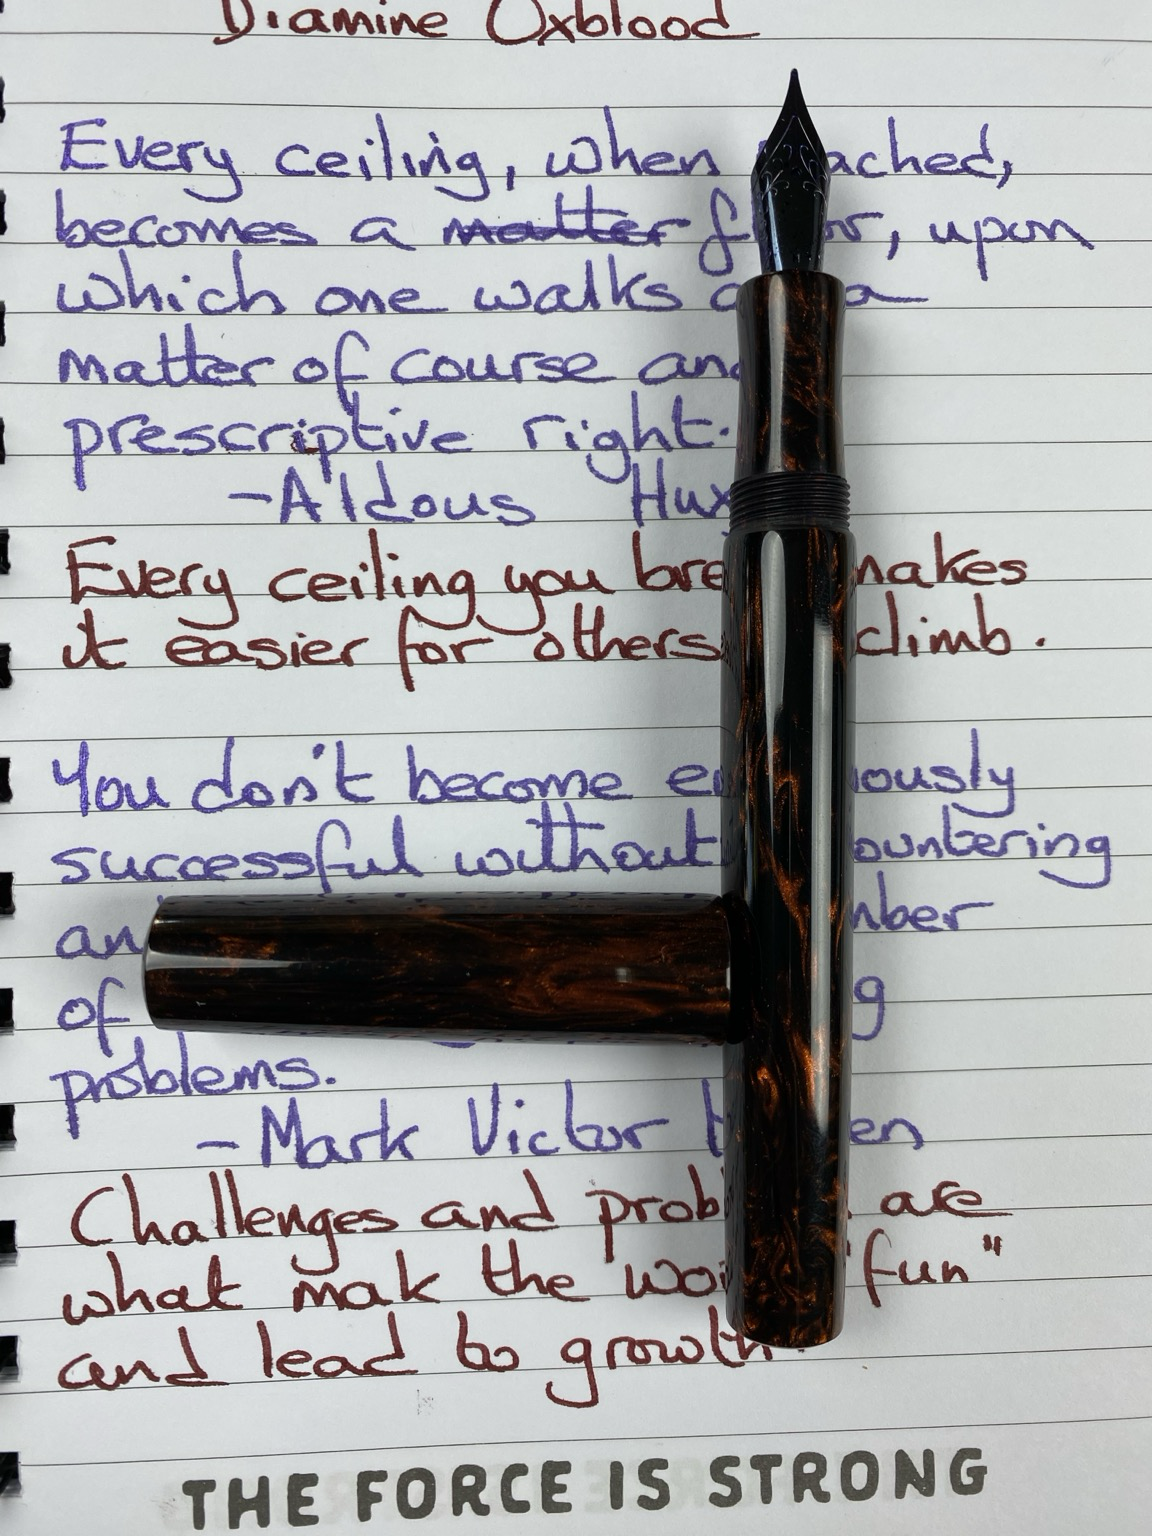 Diamine Oxblood
Every ceiling, when reached,
becomes a matter floor, upon
which one walks as a
matter of course and
prescriptive right.
-Aldous Hux
Every ceiling you break makes
it easier for others to climb.
You don't become enormously
successful without encountering
an
of
problems.
-Mark Victor Hansen
Challenges and problems are
what mak the "fun"
and lead to growth.
THE FORCE IS STRONG